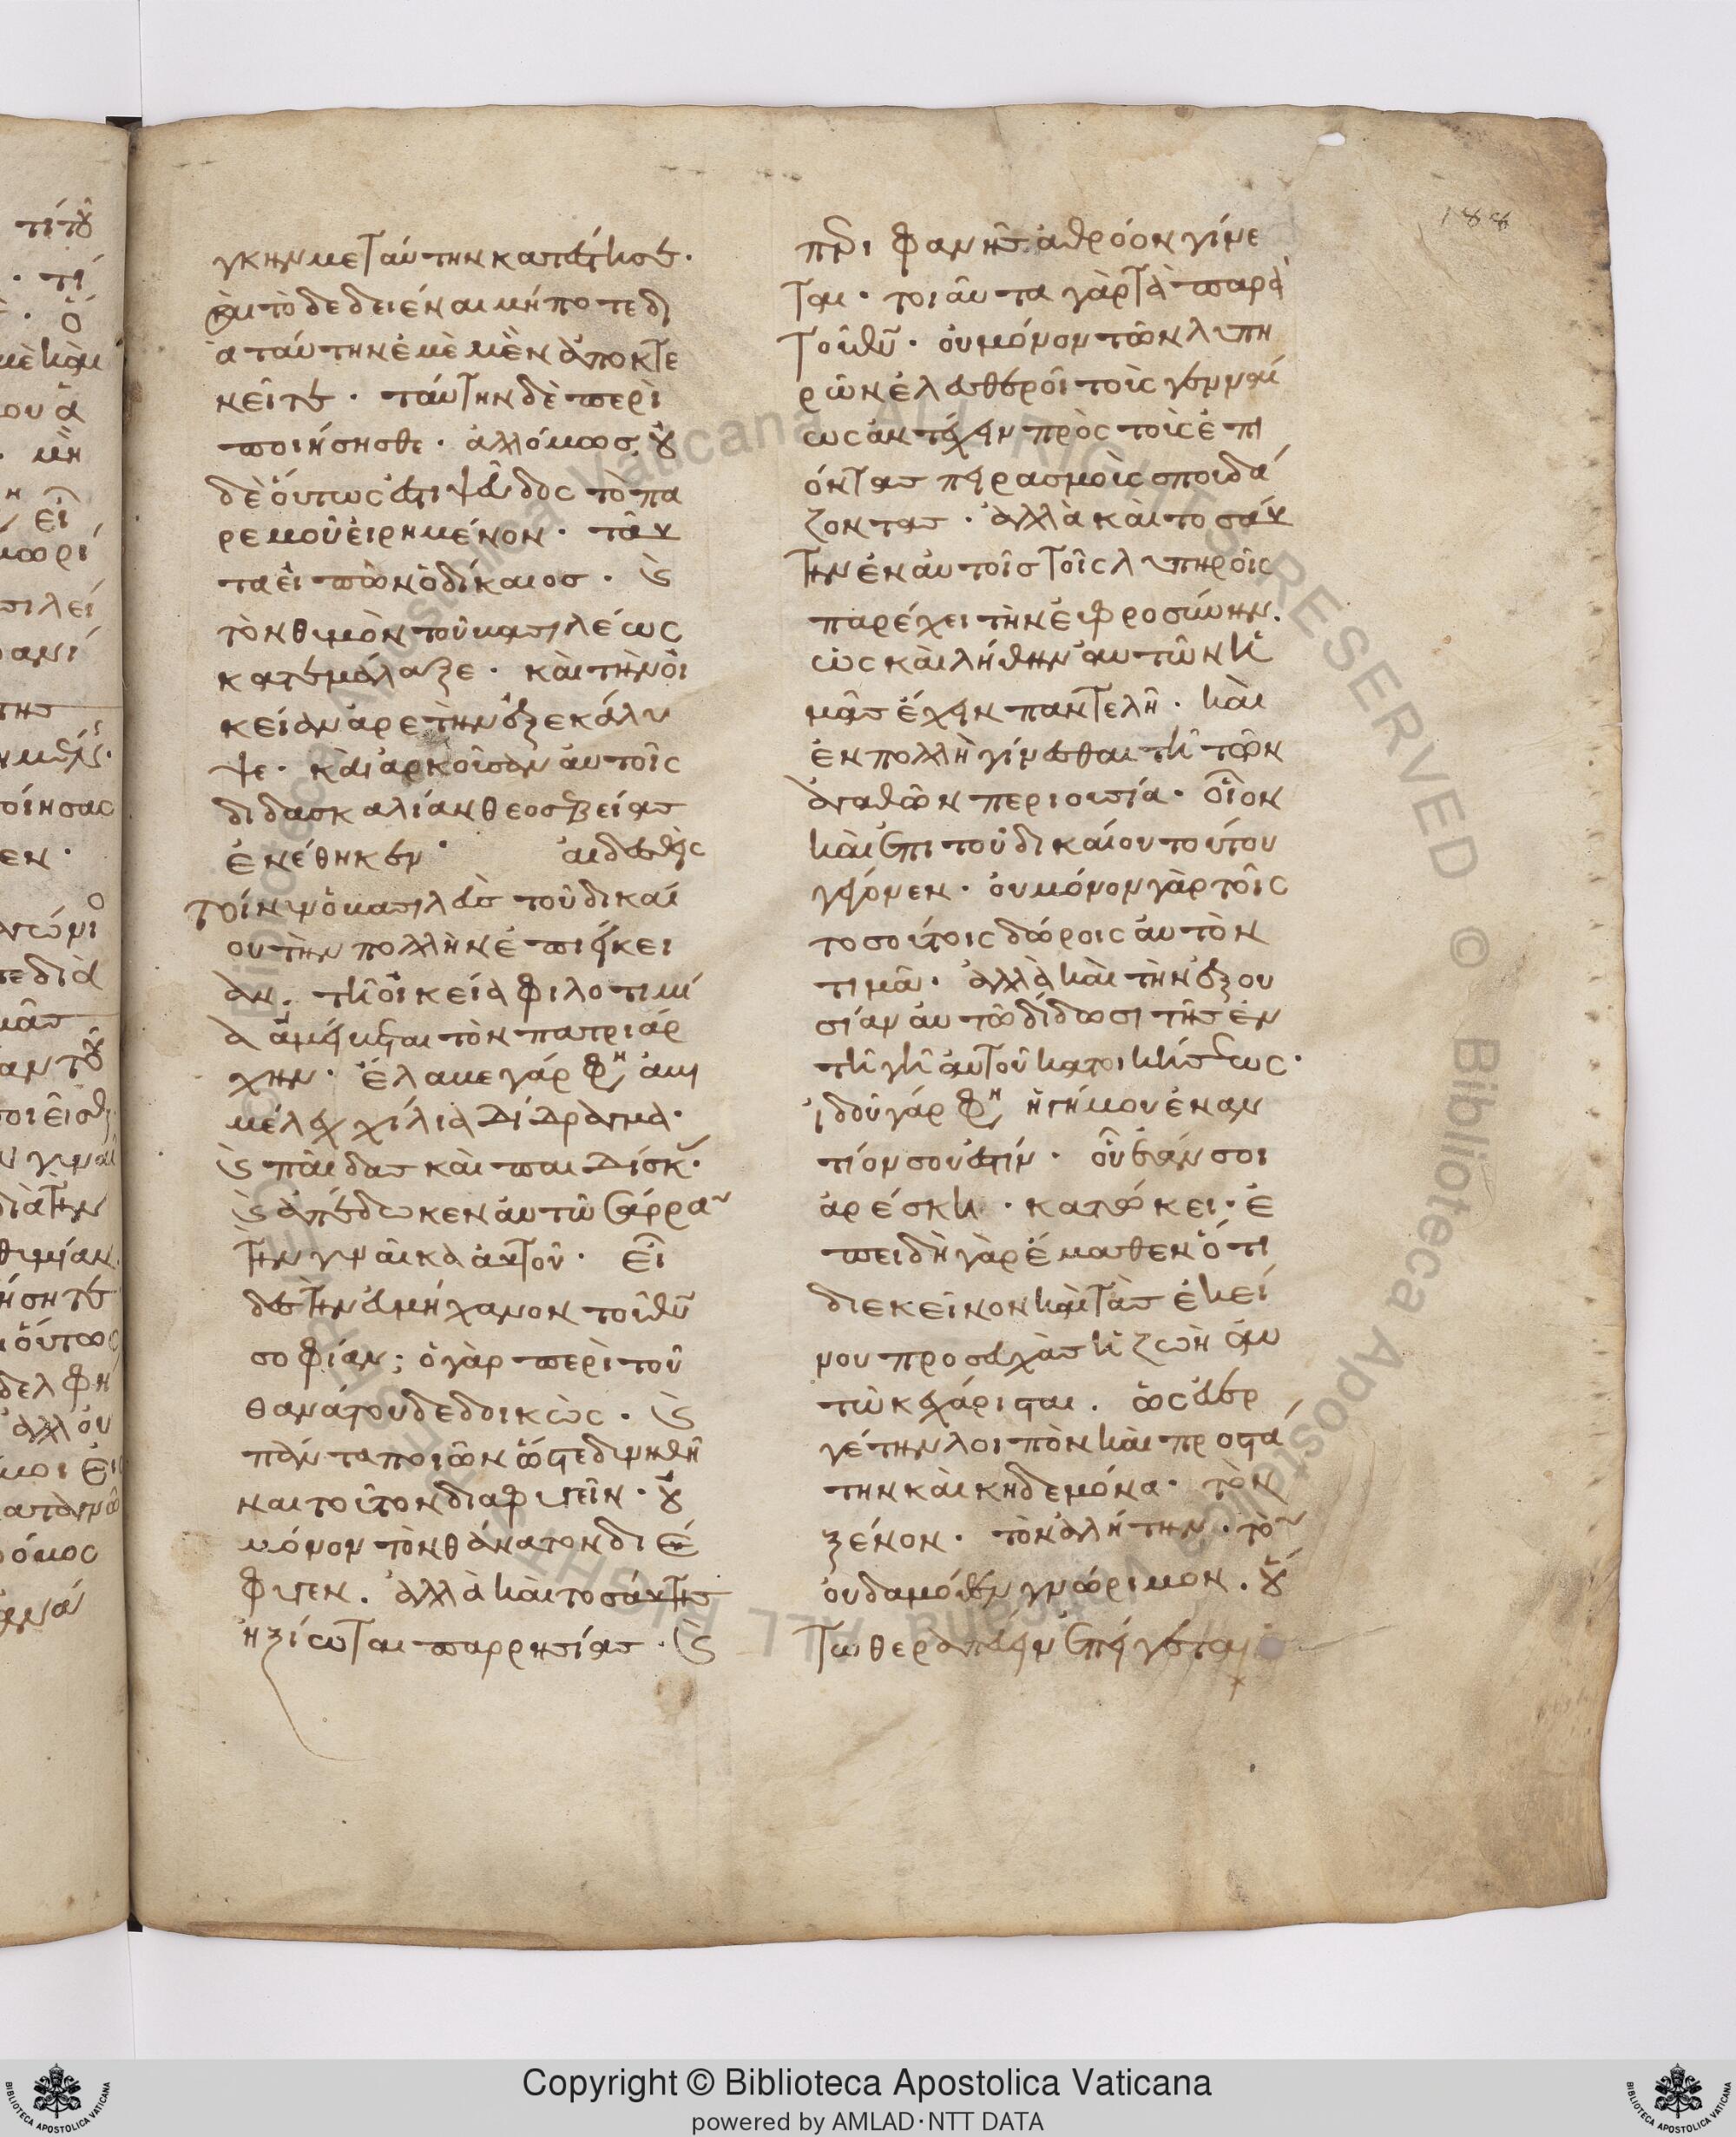 188
γκην με ταύτην καταστῆσαι.
καὶ τὸ δεδειέναι μήποτε δι
α ταύτην ἐμὲ μὲν ἀποκτε
νεῖτε· ταύτην δὲ περι
ποιήσησθε· ἀλλ' ὅμως οὐ
δὲ οὕτως ἐστι ψεῦδος τὸ πα
ρ' ἐμοῦ εἰρημένον· ταῦ
τα εἰπὼν ὁ δίκαιος· καὶ
τὸν θυμὸν τοῦ βασιλέως
κατεμάλαξε· καὶ τὴν οἰ
κείαν ἀρετὴν ἐξεκάλυ
ψε· καὶ ἀρκοῦσαν αὐτοῖς
διδασκαλίαν θεοσεβείας
ἐνέθηκεν· αἰδεσθεὶς
τοίνυν ὁ βασιλεὺς τοῦ δικαί
ου τὴν πολλὴν ἐπιείκει
αν. τῆ οἰκεία φιλοτιμί
α ἀμείβεται τὸν πατριάρ
χην· ἔλαβε γάρ φη ἀβι
μέλεχ χίλια δίδραγμα·
καὶ παῖδας καὶ παιδίσκ
καὶ ἀπέδωκεν αὐτῶ σάρρα
την γυναῖκα αὐτοῦ· εἶ
δες την ἀμήχανον τοῦ θυ
σοφίαν; ὁ γὰρ περὶ τοῦ
θανάτου δεδοικὼς· καὶ
πάντα ποιῶν ὥστε δυνηθῆ
ναι τοῦτον διαφυγεῖν· οὐ
μόνον τὸν θάνατον διέ
φυγεν. ἀλλὰ καὶ τοσαύτης
ἠξίωται παρρησίας· καὶ
περιφανὴς ἀθρόον γίνε
ται· τοιαῦτα γὰρ τὰ παρὰ
τοῦ θυ· οὐ μόνον τῶν λυπη
ρῶν ἐλευθεροῖ τοὺς γενναί
ως ἀντέχειν πρὸς τοὺς ἐπι
όντας πειρασμοὺς σπουδά
ζοντας· ἀλλὰ καὶ τοσαύ
την ἐν αὐτοῖς τοῖς λυπηροῖς
παρέχει τὴν εὐφροσύνην.
ὡς καὶ λήθην αὐτῶν ἡ
μᾶς ἔχειν παντελῆ· καὶ
ἐν πολλῆ γίνεσθαι τῆ τῶν
ἀγαθῶν περιουσία· οἷον
καὶ ἐπὶ τοῦ δικαίου τούτου
γέγονεν· οὐ μόνον γὰρ τοῖς
τοσούτοις δώροις αὐτὸν
τιμᾶ· ἀλλὰ καὶ τὴν ἐξου
σίαν αὐτῶ δίδωσι τῆς ἐν
τῆ γῆ αὐτοῦ κατοικήσεως·
ἰδοὺ γάρ φη ἡ γῆ μου ἐναν
τίον σου ἐστίν· οὗ ἐάν σοι
ἀρέσκη· κατοίκει· ἐ
πειδὴ γὰρ ἔμαθεν ὅτι
δι' ἐκεῖνον καὶ τὰς ἐκεί
νου προσευχὰς ἡ ζωὴ αὐ
τῶ κεχάρισται. ὡς εὐερ
γέτην λοιπὸν καὶ προστά
την καὶ κηδεμόνα· τὸν
ξένον· τὸν ἀλήτην· τὸ
οὐδαμόθεν γνώριμον. οὕ
τω θεραπεύειν ἐπείγεται
Copyright © Biblioteca Apostolica Vaticana
powered by AMLAD·NTT DATA